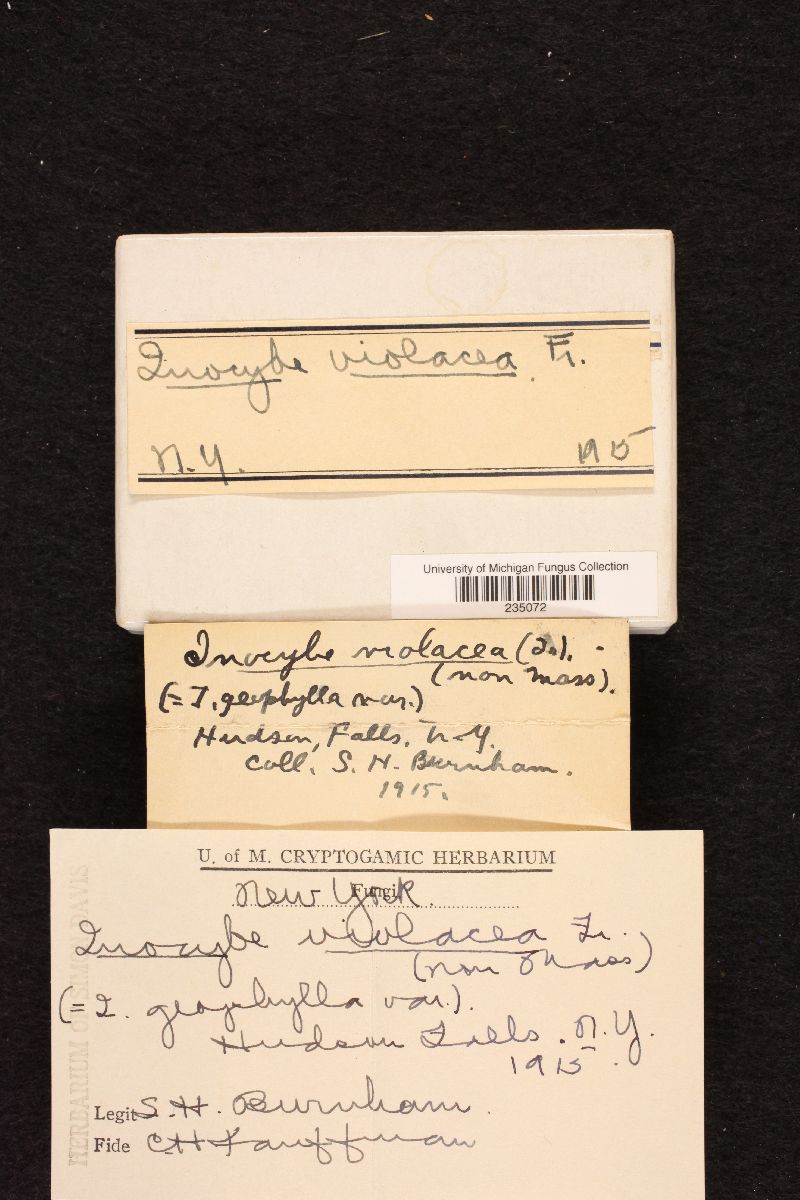 Inocybe violacea Fr.
N.Y. 1915
University of Michigan Fungus Collection
235072
Inocybe violacea (Fr.).
(non Mass).
(= I. geophylla var.)
Hudson, Falls, N.Y.
Coll. S. H. Burnham.
1915.
U. of M. CRYPTOGAMIC HERBARIUM
Fungi
New York.
Inocybe violacea Fr.
(non Mass)
(= I. geophylla var.).
Hudson Falls. N.Y.
1915.
Legit S. H. Burnham.
Fide C H Kauffman
HERBARIUM OF SIMON DAVIS